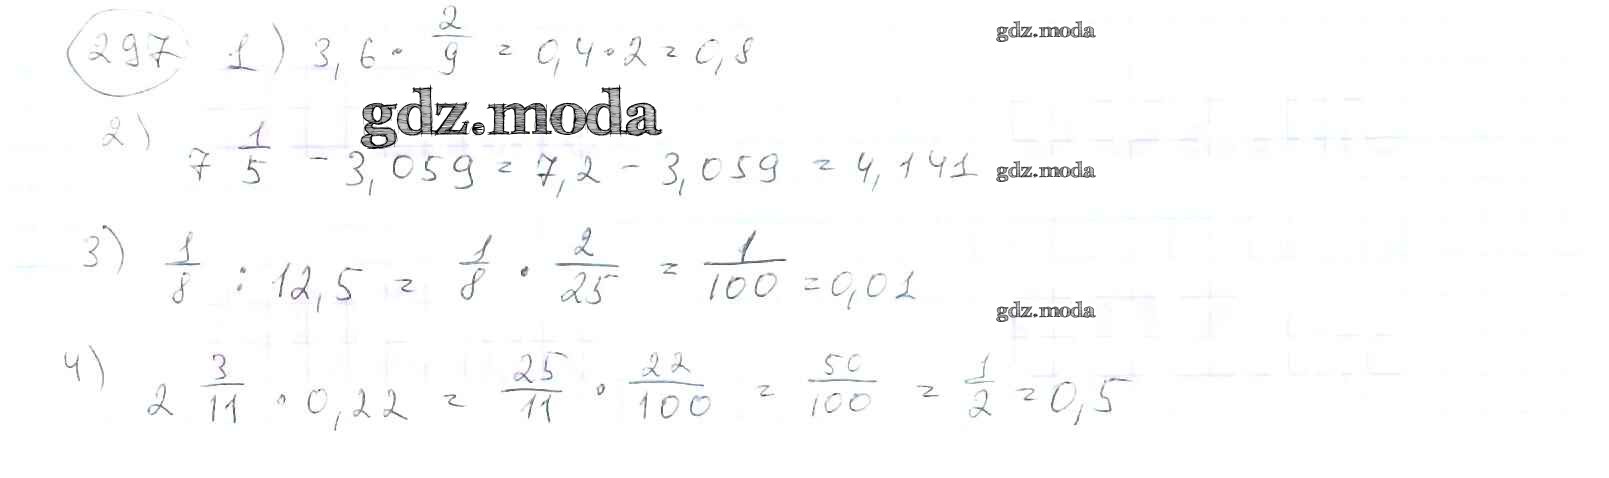 297 1) 3,6 · 2/9 = 0,4 · 2 = 0,8
gdz.moda
gdz.moda
2) 7 1/5 - 3,059 = 7,2 - 3,059 = 4,141
gdz.moda
3) 1/8 : 12,5 = 1/8 · 2/25 = 1/100 = 0,01
gdz.moda
4) 2 3/11 · 0,22 = 25/11 · 22/100 = 50/100 = 1/2 = 0,5